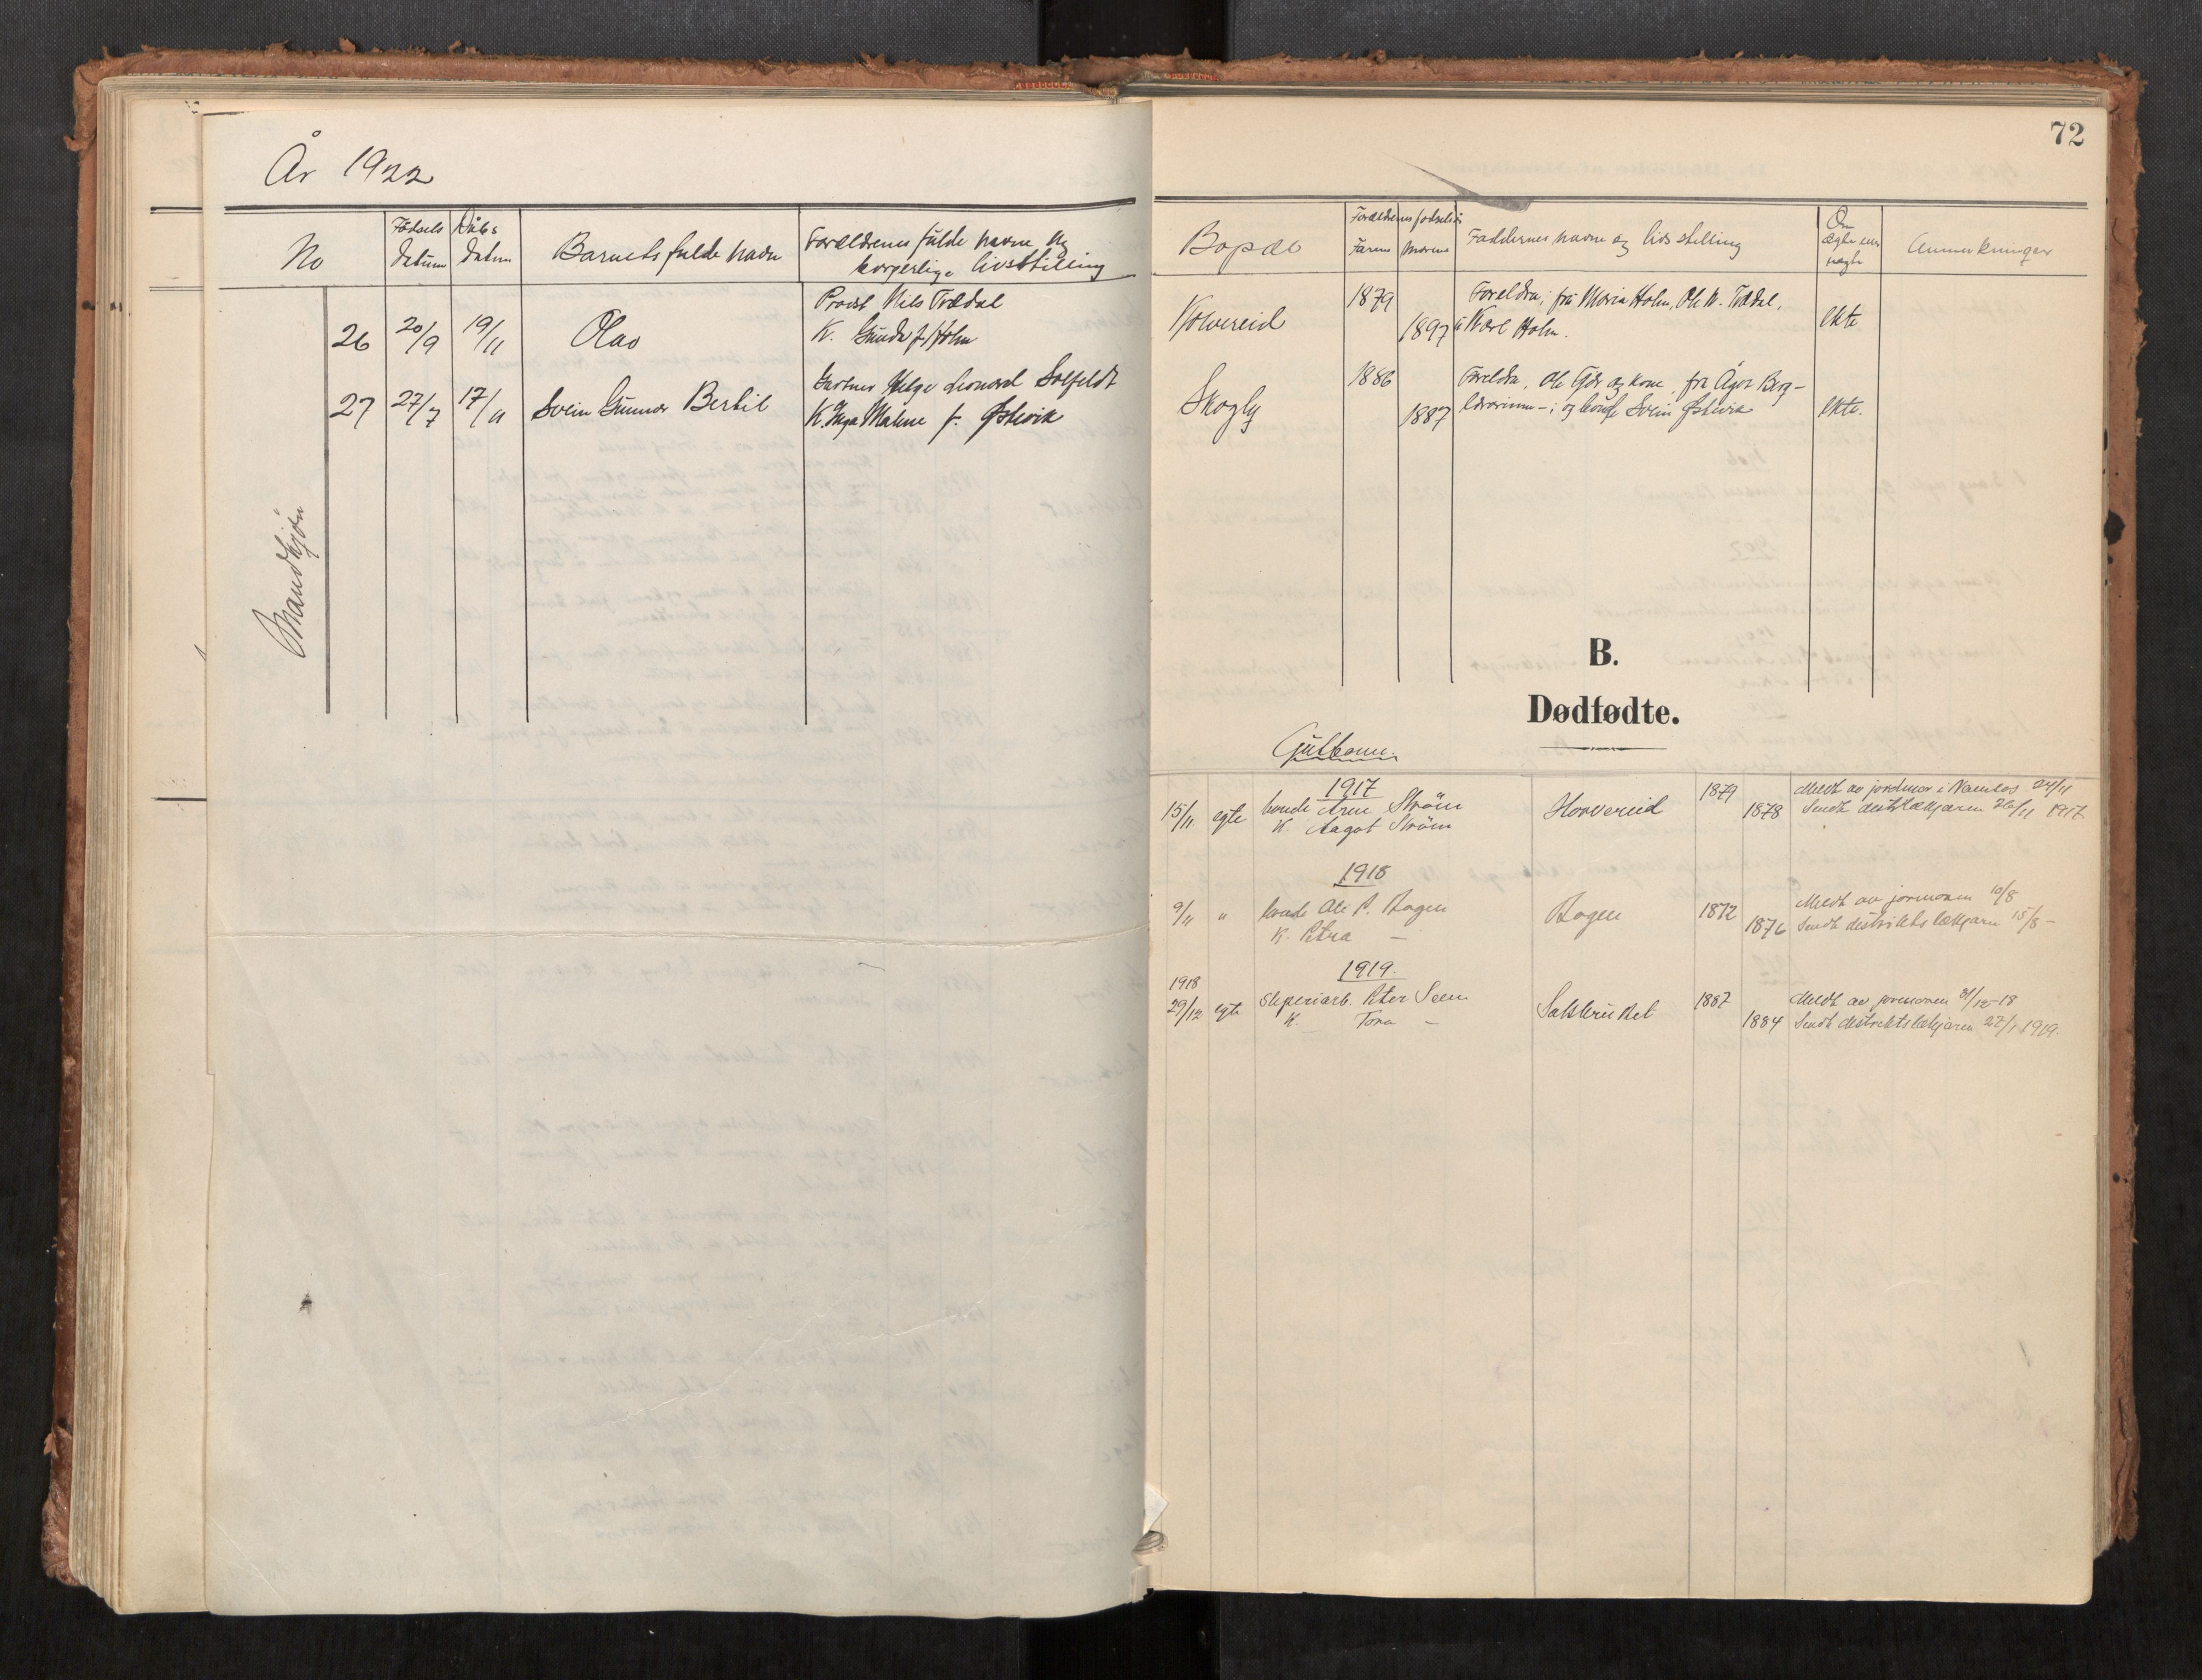 72
År 1922
No
Fødsels datum
Dåbs datum
Barnets fulde navn
Forældrenes fulde navne og borgerlige livsstilling
Bopæl
Forældrenes fødselsår
Farens
Morens
Faddernes navne og livsstilling
Om ægte eller uægte
Anmerkninger
Mandkjøn
26 20/9 19/11 Olav
Provst Nils Trædal
K. Gunda f. Holm
Kolvereid 1879 1897
Foreldra, frk Maria Holm, Ole N. Trædal,
Karl Holm.
ekte
27 27/7 17/9 Svein Gunnar Bertil
Gartner Helge Leonard Solfeldt
K. Inga Maline f. Østvik
Skogly 1886 1887
Foreldra, Ole Gjør og kone, frk Ågot Berg-
lærarinne-; og Svein Østvik
ekte.
B.
Dødfødte.
Gutbarn.
1917
15/11 egte bonde Arne Strøm
K. Aagot Strøm
Horvereid 1879 1878
Meldt av jordmor i Namsos 24/11
Sendt distrlækjaren 26/11 1917
1918
9/11 " bonde Ole P. Hagen
K. Petra –
Hagen 1872 1876
Meldt av jormoren 10/8
Sendt distriktslækjaren 15/8 –
1919.
1918
29/12 egte Sliperiarb. Peter Seem
K. Tora –
Salsbruket 1887 1884
Meldt av jormoren 31/12-18
Sendt distriktslækjaren 27/1 1919.